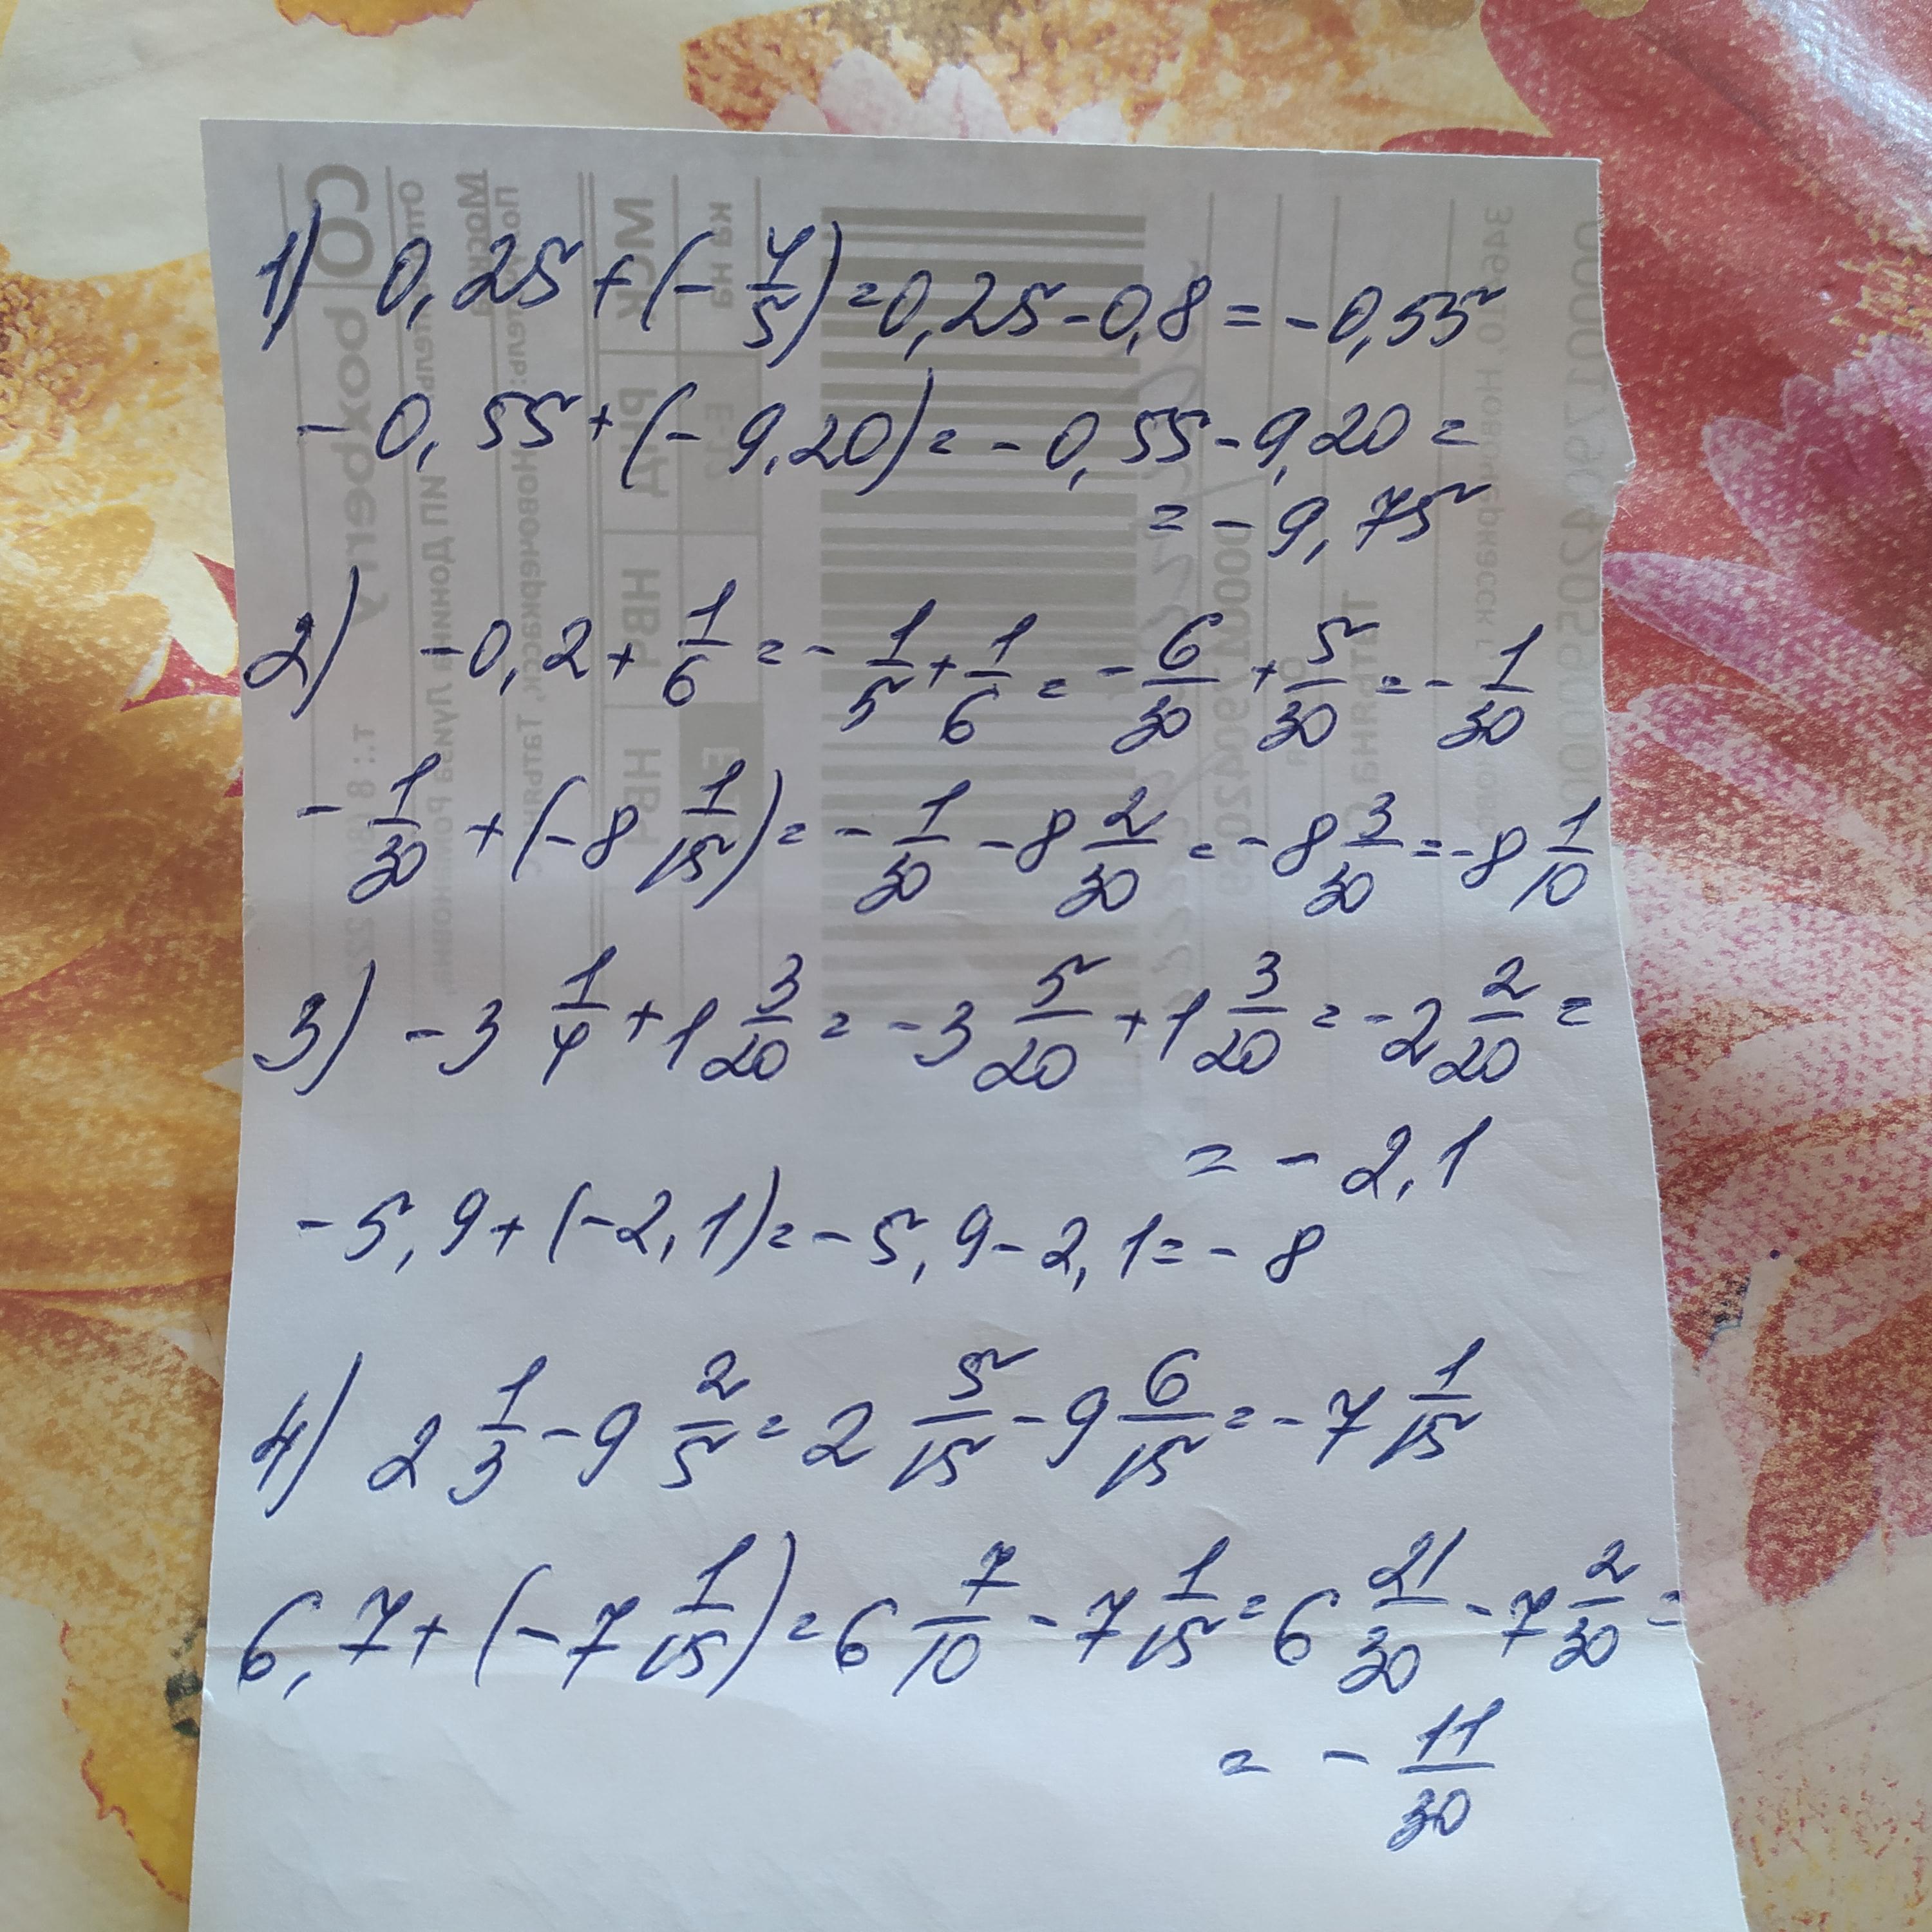 1) 0,25 + (- 4/5) = 0,25 - 0,8 = - 0,55
- 0,55 + (- 9,20) = - 0,55 - 9,20 =
= - 9,75
2) - 0,2 + 1/6 = - 1/5 + 1/6 = - 6/30 + 5/30 = - 1/30
- 1/30 + (- 8 1/15) = - 1/30 - 8 2/30 = - 8 3/30 = - 8 1/10
3) - 3 1/4 + 1 3/20 = - 3 5/20 + 1 3/20 = - 2 2/20 =
= - 2,1
- 5,9 + (- 2,1) = - 5,9 - 2,1 = - 8
4) 2 1/3 - 9 2/5 = 2 5/15 - 9 6/15 = - 7 1/15
6,7 + (- 7 1/15) = 6 7/10 - 7 1/15 = 6 21/30 - 7 2/30 =
= - 11/30